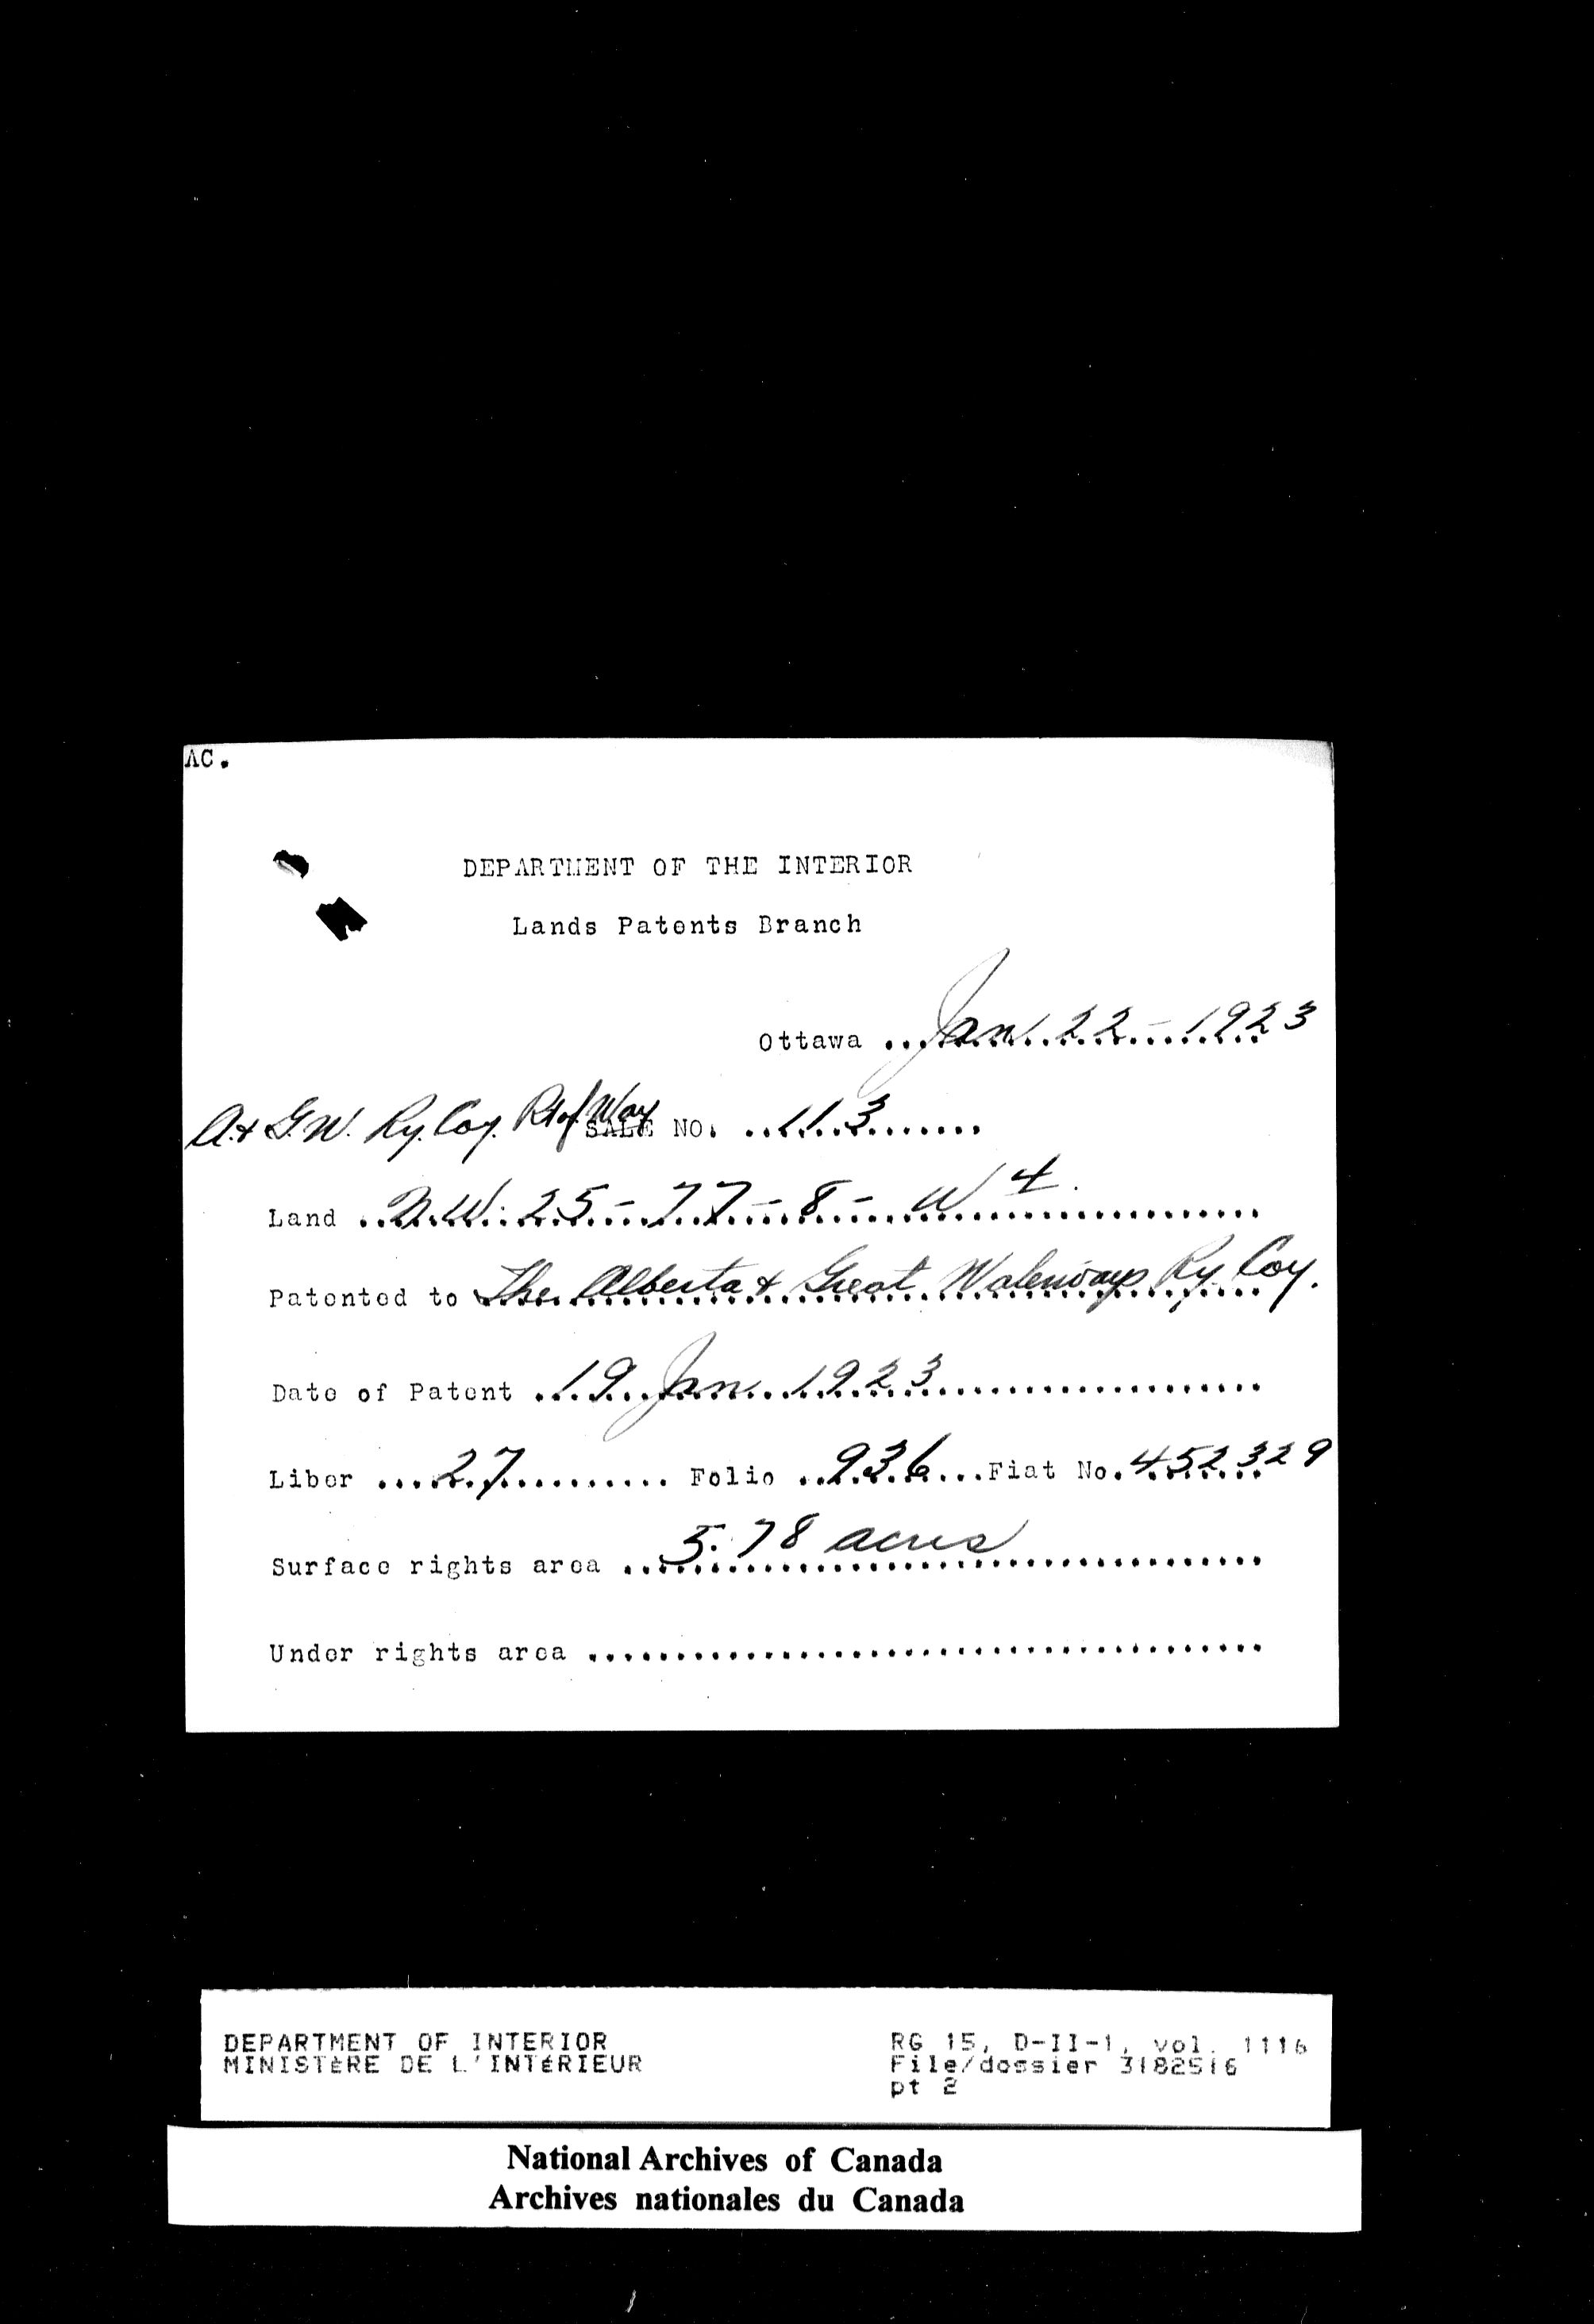 AC.
DEPARTMENT OF THE INTERIOR
Lands Patents Branch
Ottawa ... Jan 22 - 1923
A. & G. W. Ry. Coy. Rt of Way SALE NO. ... 113 ...
Land ... N.W. 25 - 77 - 8 - W 4. ...
Patented to The Alberta & Great Waterways Ry. Coy.
Date of Patent ... 19 Jan 1923 ...
Liber ... 27 ... Folio ... 936 ... Fiat No. 452329
Surface rights area ... 5.78 acres ...
Under rights area ...
DEPARTMENT OF INTERIOR RG 15, D-II-1, vol. 1116
MINISTÈRE DE L'INTÉRIEUR File/dossier 3182516
pt 2
National Archives of Canada
Archives nationales du Canada